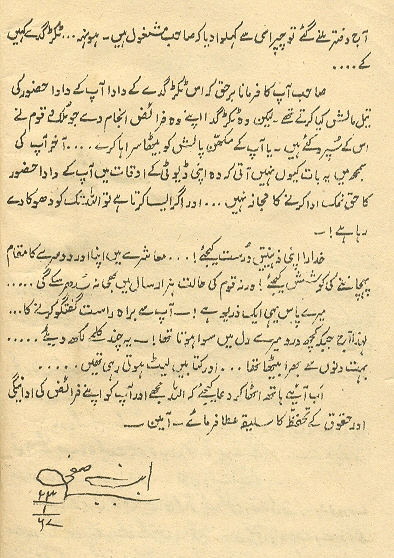 آج دفتر ملنے گئے تو چپراسی سے کہلوا دیا کہ صاحب مشغول ہیں۔ ہونہہ... ٹکڑ گدے کہیں
کے....
صاحب آپ کا فرمانا برحق کہ اس ٹکڑ گدے کے دادا آپ کے دادا حضور کی
تیل مالش کیا کرتے تھے۔ لیکن وہ ٹکڑ گدا اپنے وہ فرائض انجام دے جو ملک و قوم نے
اس کے سپرد کئے ہیں۔ یا آپ کے مکھن پالش کو بیٹھا سراہا کرے.... آخر آپ کی
سمجھ میں یہ بات کیوں نہیں آتی کہ وہ اپنی ڈیوٹی کے اوقات میں آپ کے دادا حضور
کا حق نمک ادا کرنے کا مجاز نہیں... اور اگر ایسا کرتا ہے تو اللہ تک کو دھوکا دے
رہا ہے!۔
خدارا اپنی ذہنیتیں درست کیجئے!... معاشرے میں اپنا اور دوسرے کا مقام
پہچاننے کی کوشش کیجئے! ورنہ قوم کی حالت ہزار سال میں بھی نہ سدھر سکے گی.....
میرے پاس یہی ایک ذریعہ ہے!۔ آپ سے براہ راست گفتگو کرنے کا...
لہذا آج جبکہ کچھ درد میرے دل میں سوا ہوتا تھا!۔ یہ چند کلمے لکھ دیئے.....
بہت دنوں سے بھرا بیٹھا تھا... اور کتابیں لیٹ ہوتی رہی تھیں.....
اب آیئے ہاتھ اٹھا کر دعا کیجئے کہ اللہ مجھے اور آپ کو اپنے فرائض کی ادائیگی
اور حقوق کے تحفظ کا سلیقہ عطا فرمائے۔ آمین۔
ابن صفی